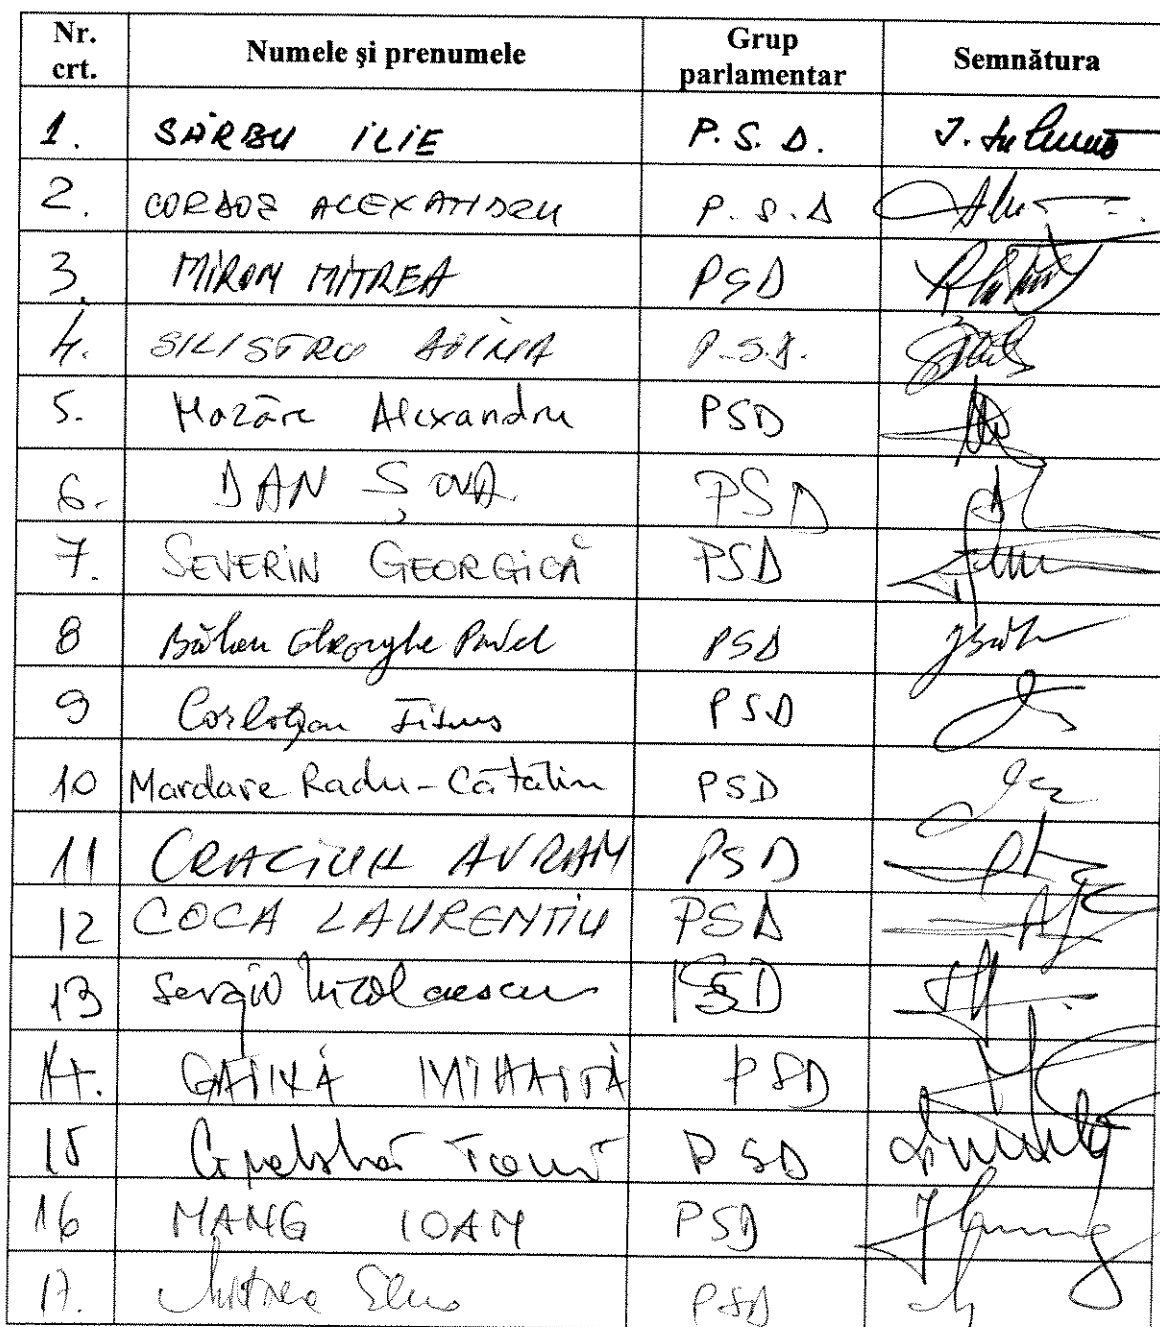 Nr. crt. Numele și prenumele Grup parlamentar Semnătura
1. SÂRBU ILIE P.S.D.
2. CORDOȘ ALEXANDRU P.S.D
3. MIRON MITREA PSD
4. SILISTRU DOINA P.S.D.
5. Mazăre Alexandru PSD
6. DAN ȘOVA PSD
7. SEVERIN GEORGICĂ PSD
8 Bâlan Gheorghe Pavel PSD
9 Corlățean Titus PSD
10 Mardare Radu-Cătălin PSD
11 CRACIUN AVRAM PSD
12 COCA LAURENTIU PSD
13 Sergiu Nicolaescu PSD
14. GĂINĂ MIHĂIȚĂ PSD
15 PSD
16 MANG IOAN PSD
17. Mitrea Elena PSD